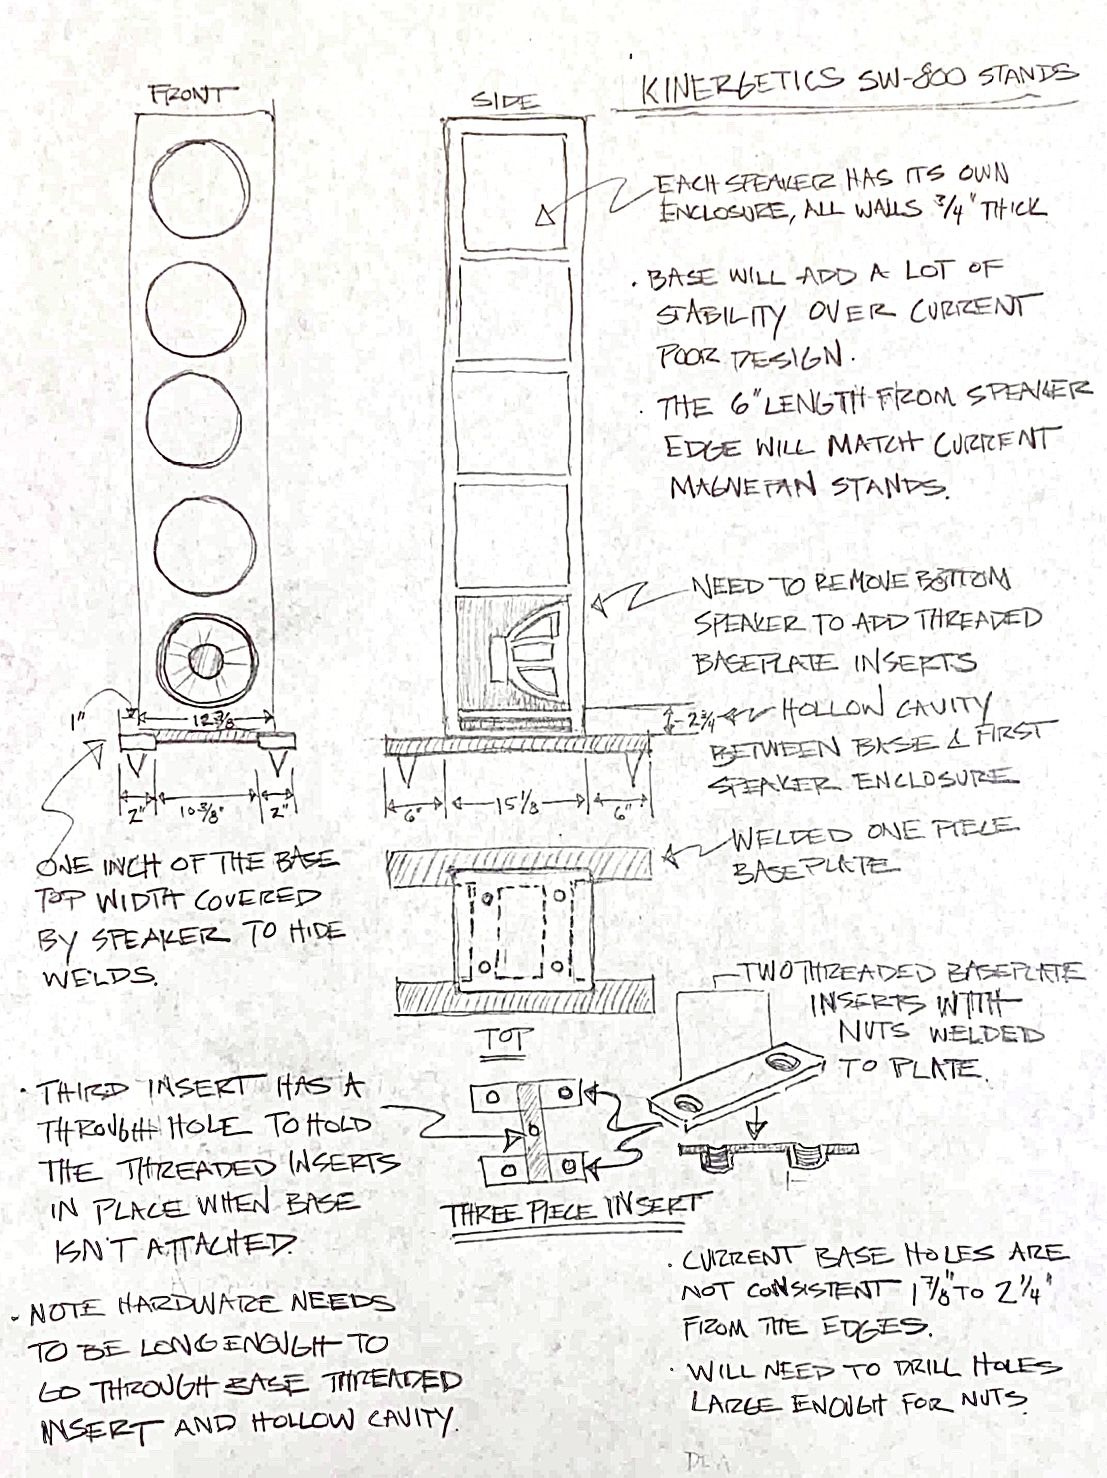 KINERGETICS SW-800 STANDS
FRONT
SIDE
EACH SPEAKER HAS ITS OWN
ENCLOSURE, ALL WALLS 3/4" THICK
· BASE WILL ADD A LOT OF
STABILITY OVER CURRENT
POOR DESIGN.
· THE 6" LENGTH FROM SPEAKER
EDGE WILL MATCH CURRENT
MAGNEPAN STANDS.
NEED TO REMOVE BOTTOM
SPEAKER TO ADD THREADED
BASEPLATE INSERTS
1"
12 3/8
2 3/4
HOLLOW CAVITY
BETWEEN BASE & FIRST
SPEAKER ENCLOSURE
2"
10 3/8"
2"
6"
15 1/8
6"
WELDED ONE PIECE
BASEPLATE.
ONE INCH OF THE BASE
TOP WIDTH COVERED
BY SPEAKER TO HIDE
WELDS.
TOP
TWO THREADED BASEPLATE
INSERTS WITH
NUTS WELDED
TO PLATE.
· THIRD INSERT HAS A
THROUGH HOLE TO HOLD
THE THREADED INSERTS
IN PLACE WHEN BASE
ISN'T ATTACHED.
THREE PIECE INSERT
· NOTE HARDWARE NEEDS
TO BE LONG ENOUGH TO
GO THROUGH BASE THREADED
INSERT AND HOLLOW CAVITY.
· CURRENT BASE HOLES ARE
NOT CONSISTENT 1 7/8" TO 2 1/4"
FROM THE EDGES.
· WILL NEED TO DRILL HOLES
LARGE ENOUGH FOR NUTS.